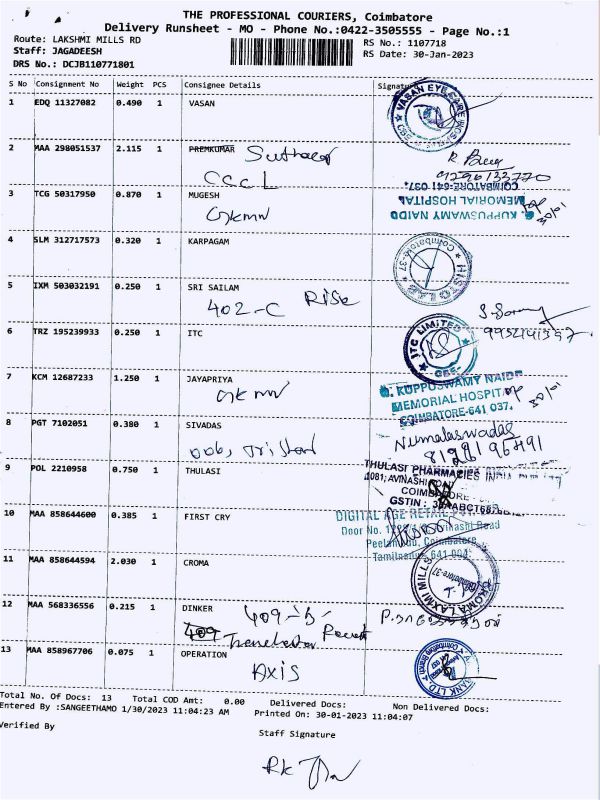 THE PROFESSIONAL COURIERS, Coimbatore
Delivery Runsheet - MO - Phone No.:0422-3505555 - Page No.:1
Route: LAKSHMI MILLS RD RS No.: 1107718
Staff: JAGADEESH RS Date: 30-Jan-2023
DRS No.: DCJB110771801
S No Consignment No Weight PCS Consignee Details Signature
1 EDQ 11327082 0.490 1 VASAN
VASAN EYE CARE
2 MAA 298051537 2.115 1 PREMKUMAR
CCCL
COIMBATORE-641 037.
3 TCG 50317950 0.870 1 MUGESH
GKMN
G. KUPPUSWAMY NAIDU
MEMORIAL HOSPITAL
4 SLM 312717573 0.320 1 KARPAGAM
HISTO LAB
Coimbatore-37
5 IXM 503032191 0.250 1 SRI SAILAM
402-C RISE
6 TRZ 195239933 0.250 1 ITC
ITC LIMITED
7 KCM 12687233 1.250 1 JAYAPRIYA
GKMN
G. KUPPUSWAMY NAIDU
MEMORIAL HOSPITAL
COIMBATORE-641 037.
8 PGT 7102051 0.380 1 SIVADAS
9 POL 2210958 0.750 1 THULASI
THULASI PHARMACIES
COIMBATORE
GSTIN :
10 MAA 858644600 0.385 1 FIRST CRY
DIGITAL AGE RETAIL
Door No. Avinashi Road
Peelamedu, Coimbatore
Tamilnadu 641 004.
11 MAA 858644594 2.030 1 CROMA
CROMA LAXMI MILLS
Coimbatore-37
12 MAA 568336556 0.215 1 DINKER
409
13 MAA 858967706 0.075 1 OPERATION
AXIS
Total No. Of Docs: 13 Total COD Amt: 0.00 Delivered Docs: Non Delivered Docs:
Entered By :SANGEETHAMO 1/30/2023 11:04:23 AM Printed On: 30-01-2023 11:04:07
Verified By Staff Signature